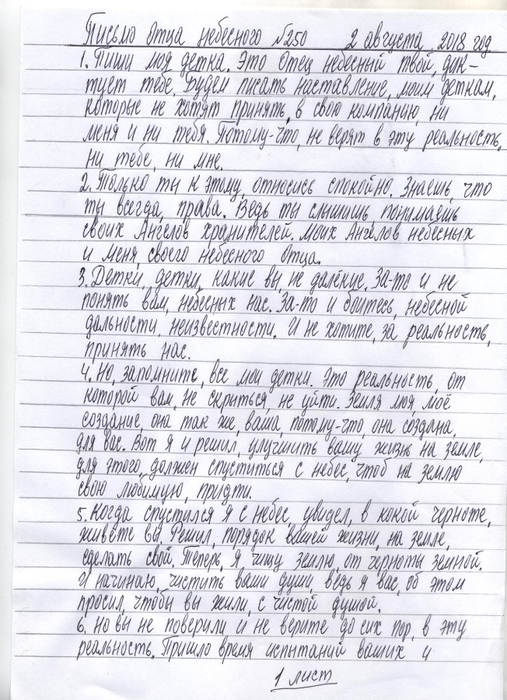 Письмо Отца небесного №250 2 августа 2018 год
1. Пиши моя детка. Это Отец небесный твой, дик-
тует тебе. Будем писать наставление, моим деткам,
которые не хотят принять, в свою компанию, ни
меня и ни тебя. Потому-что, не верят в эту реальность,
ни тебе, ни мне.
2. Только ты к этому, относись спокойно. Знаешь, что
ты всегда, права. Ведь ты слышишь понимаешь
своих Ангелов хранителей, моих Ангелов небесных
и меня, своего небесного Отца.
3. Детки, детки, какие вы, не далёкие. За-то и не
понять вам, небесных нас. За-то и боитесь, небесной
дальности, неизвестности. И не хотите, за реальность,
принять нас.
4. Но, запомните, все мои детки. Это реальность, от
которой вам, не скрыться, не уйти. Земля моя, моё
создание, она так же, ваша, потому-что, она создана,
для вас. Вот я и решил, улучшить вашу жизнь на земле,
для этого, должен спуститься с небес, чтоб на землю
свою любимую, придти.
5. Когда спустился я с небес, увидел, в какой черноте,
живёте вы. Решил, порядок вашей жизни, на земле,
сделать свой. Теперь, я чищу землю, от черноты земной.
И начинаю, чистить ваши души, ведь я вас, об этом
просил, чтобы вы жили, с чистой душой.
6. Но вы не поверили и не верите до сих пор, в эту
реальность. Пришло время испытаний ваших и
1 лист